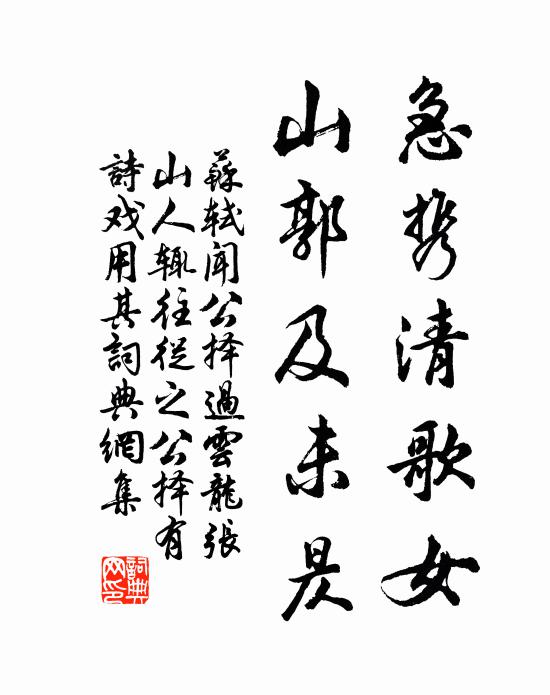 急携清歌女
山郭及未昃
蘇軾聞公择過雲龍張
山人輙往從之公择有
詩戏用其詞典網集
詞典
网印